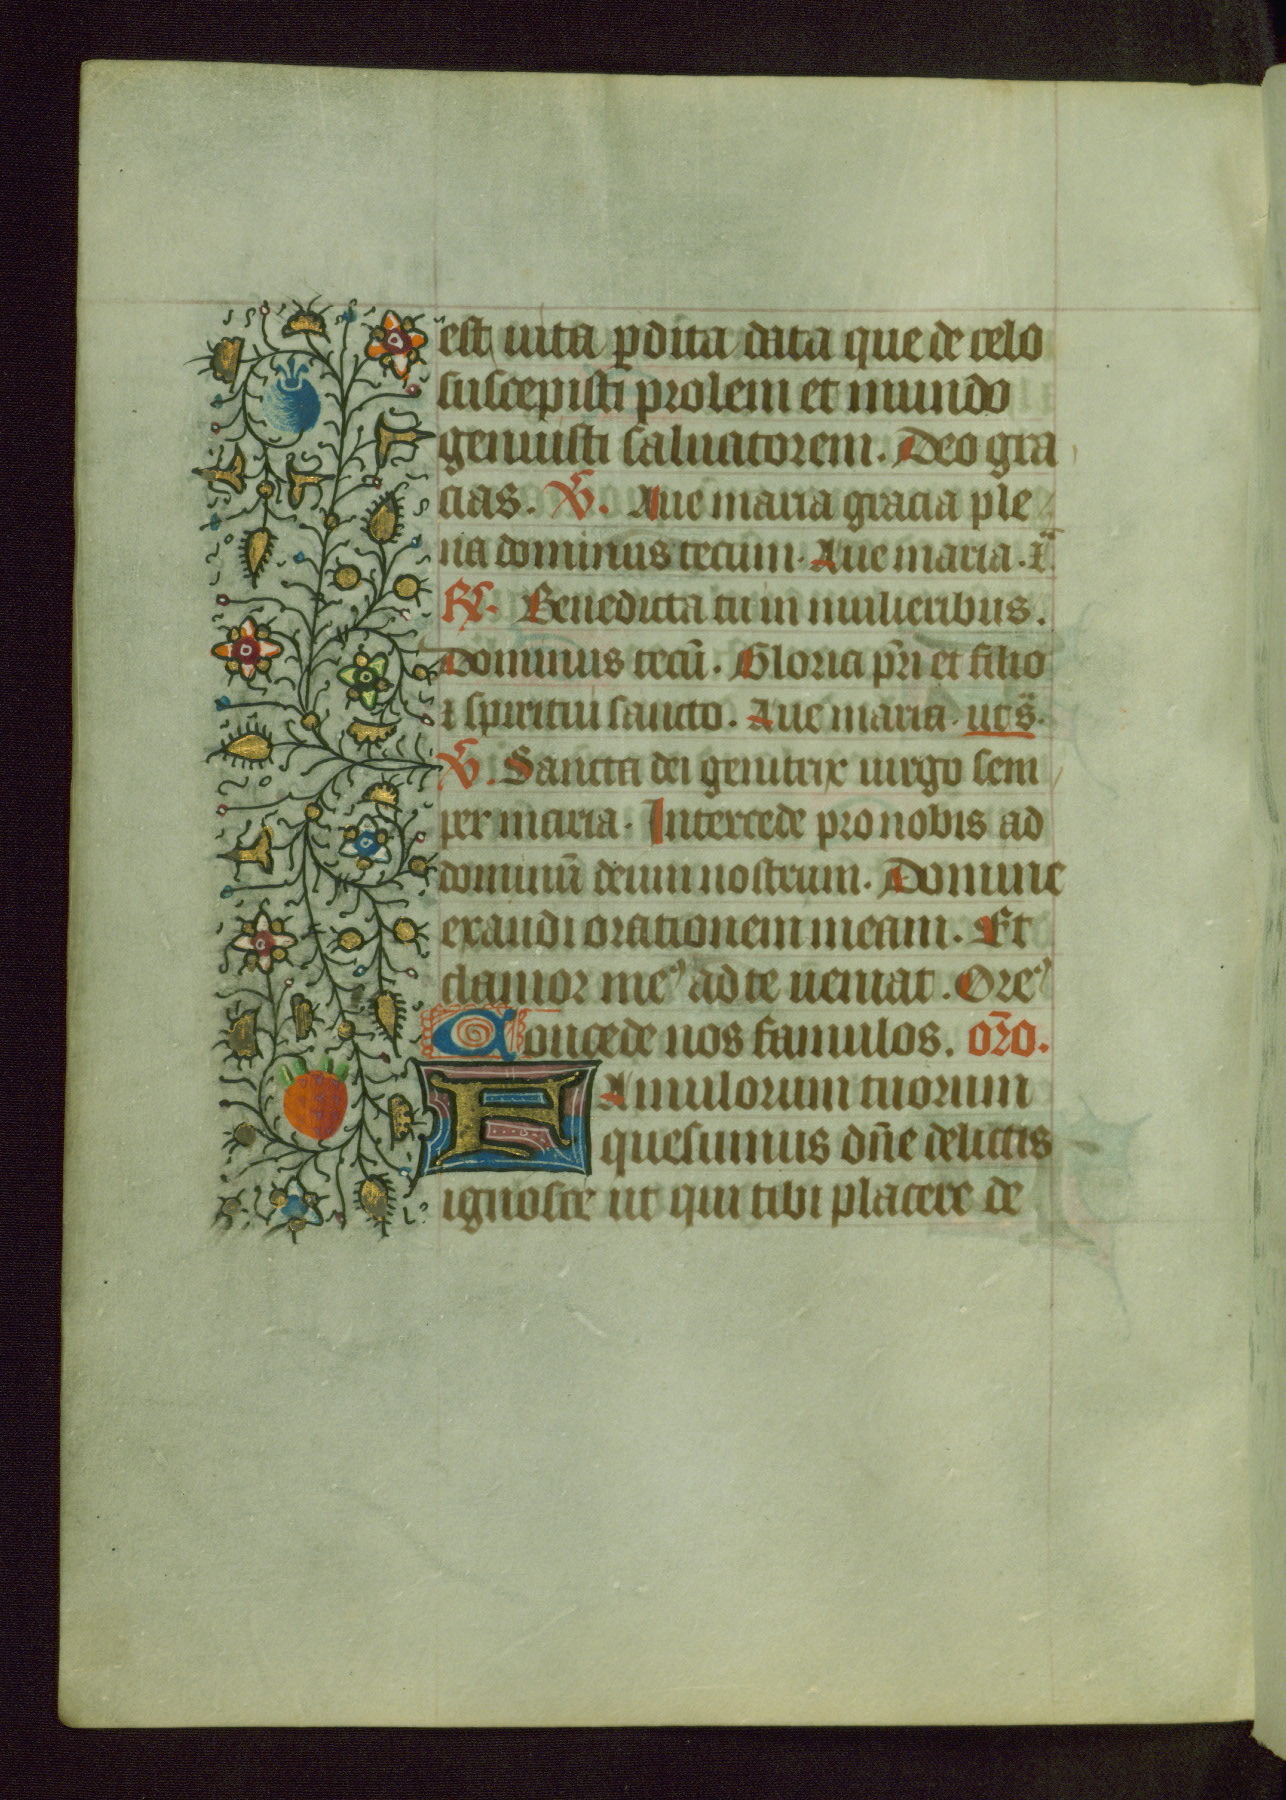 est uita p̱dita data que de celo
suscepisti prolem et mundo
genuisti saluatorem. Deo gra
cias. V̄. Aue maria gracia ple
na dominus tecum. Aue maria. ⁊̄.
R̸. Benedicta tu in mulieribus.
Dominus tecū. Gloria p̄ri et filio
⁊ spiritui sancto. Aue maria. u̅c̅s̅.
V̄. Sancta dei genitrix uirgo sem
per maria. Intercede pro nobis ad
dominū deum nostrum. Domine
exaudi orationem meam. Et
clamor meꝰ ad te ueniat. Oremꝰ
Concede nos famulos. or̄o.
FAmulorum tuorum
quesumus dn̄e delictis
ignosce ut qui tibi placere de